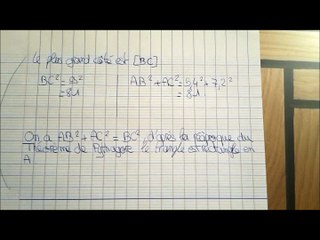 Le plus grand côté est [BC]
BC² = 9² AB² + AC² = 5,4² + 7,2²
= 81 = 81
On a AB² + AC² = BC², d'après la réciproque du
Théorème de Pythagore le triangle est rectangle en
A